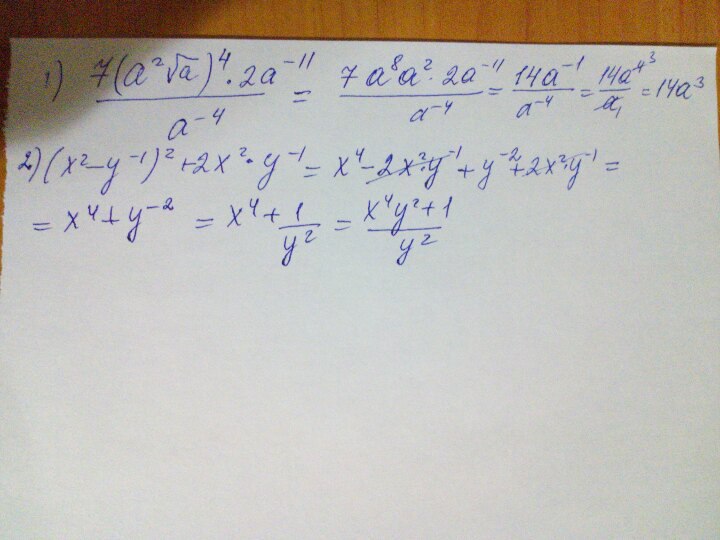 1) \frac{7(a^2\sqrt{a})^4 \cdot 2a^{-11}}{a^{-4}} = \frac{7a^8a^2 \cdot 2a^{-11}}{a^{-4}} = \frac{14a^{-1}}{a^{-4}} = \frac{14a^{4^3}}{a_1} = 14a^3
2) (x^2 - y^{-1})^2 + 2x^2 \cdot y^{-1} = x^4 - 2x^2 \cdot y^{-1} + y^{-2} + 2x^2 \cdot y^{-1} =
= x^4 + y^{-2} = x^4 + \frac{1}{y^2} = \frac{x^4y^2 + 1}{y^2}